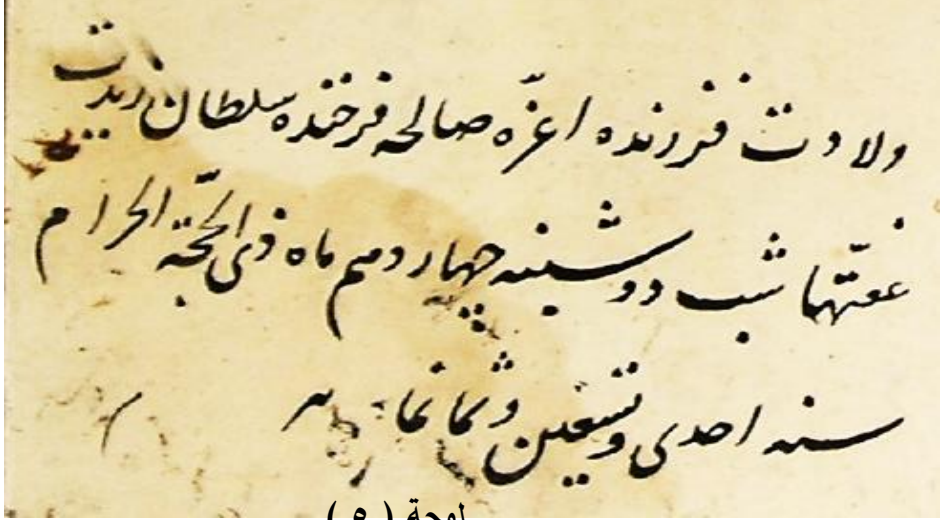 ولادت فرزنده اعزّه صالحه فرخنده سلطان زیدت
عفّتها شب دوشنبه چهاردهم ماه ذی الحجّة الحرام
سنه احدی و تسعین و ثمانمایه
لوحة ( ٥ )